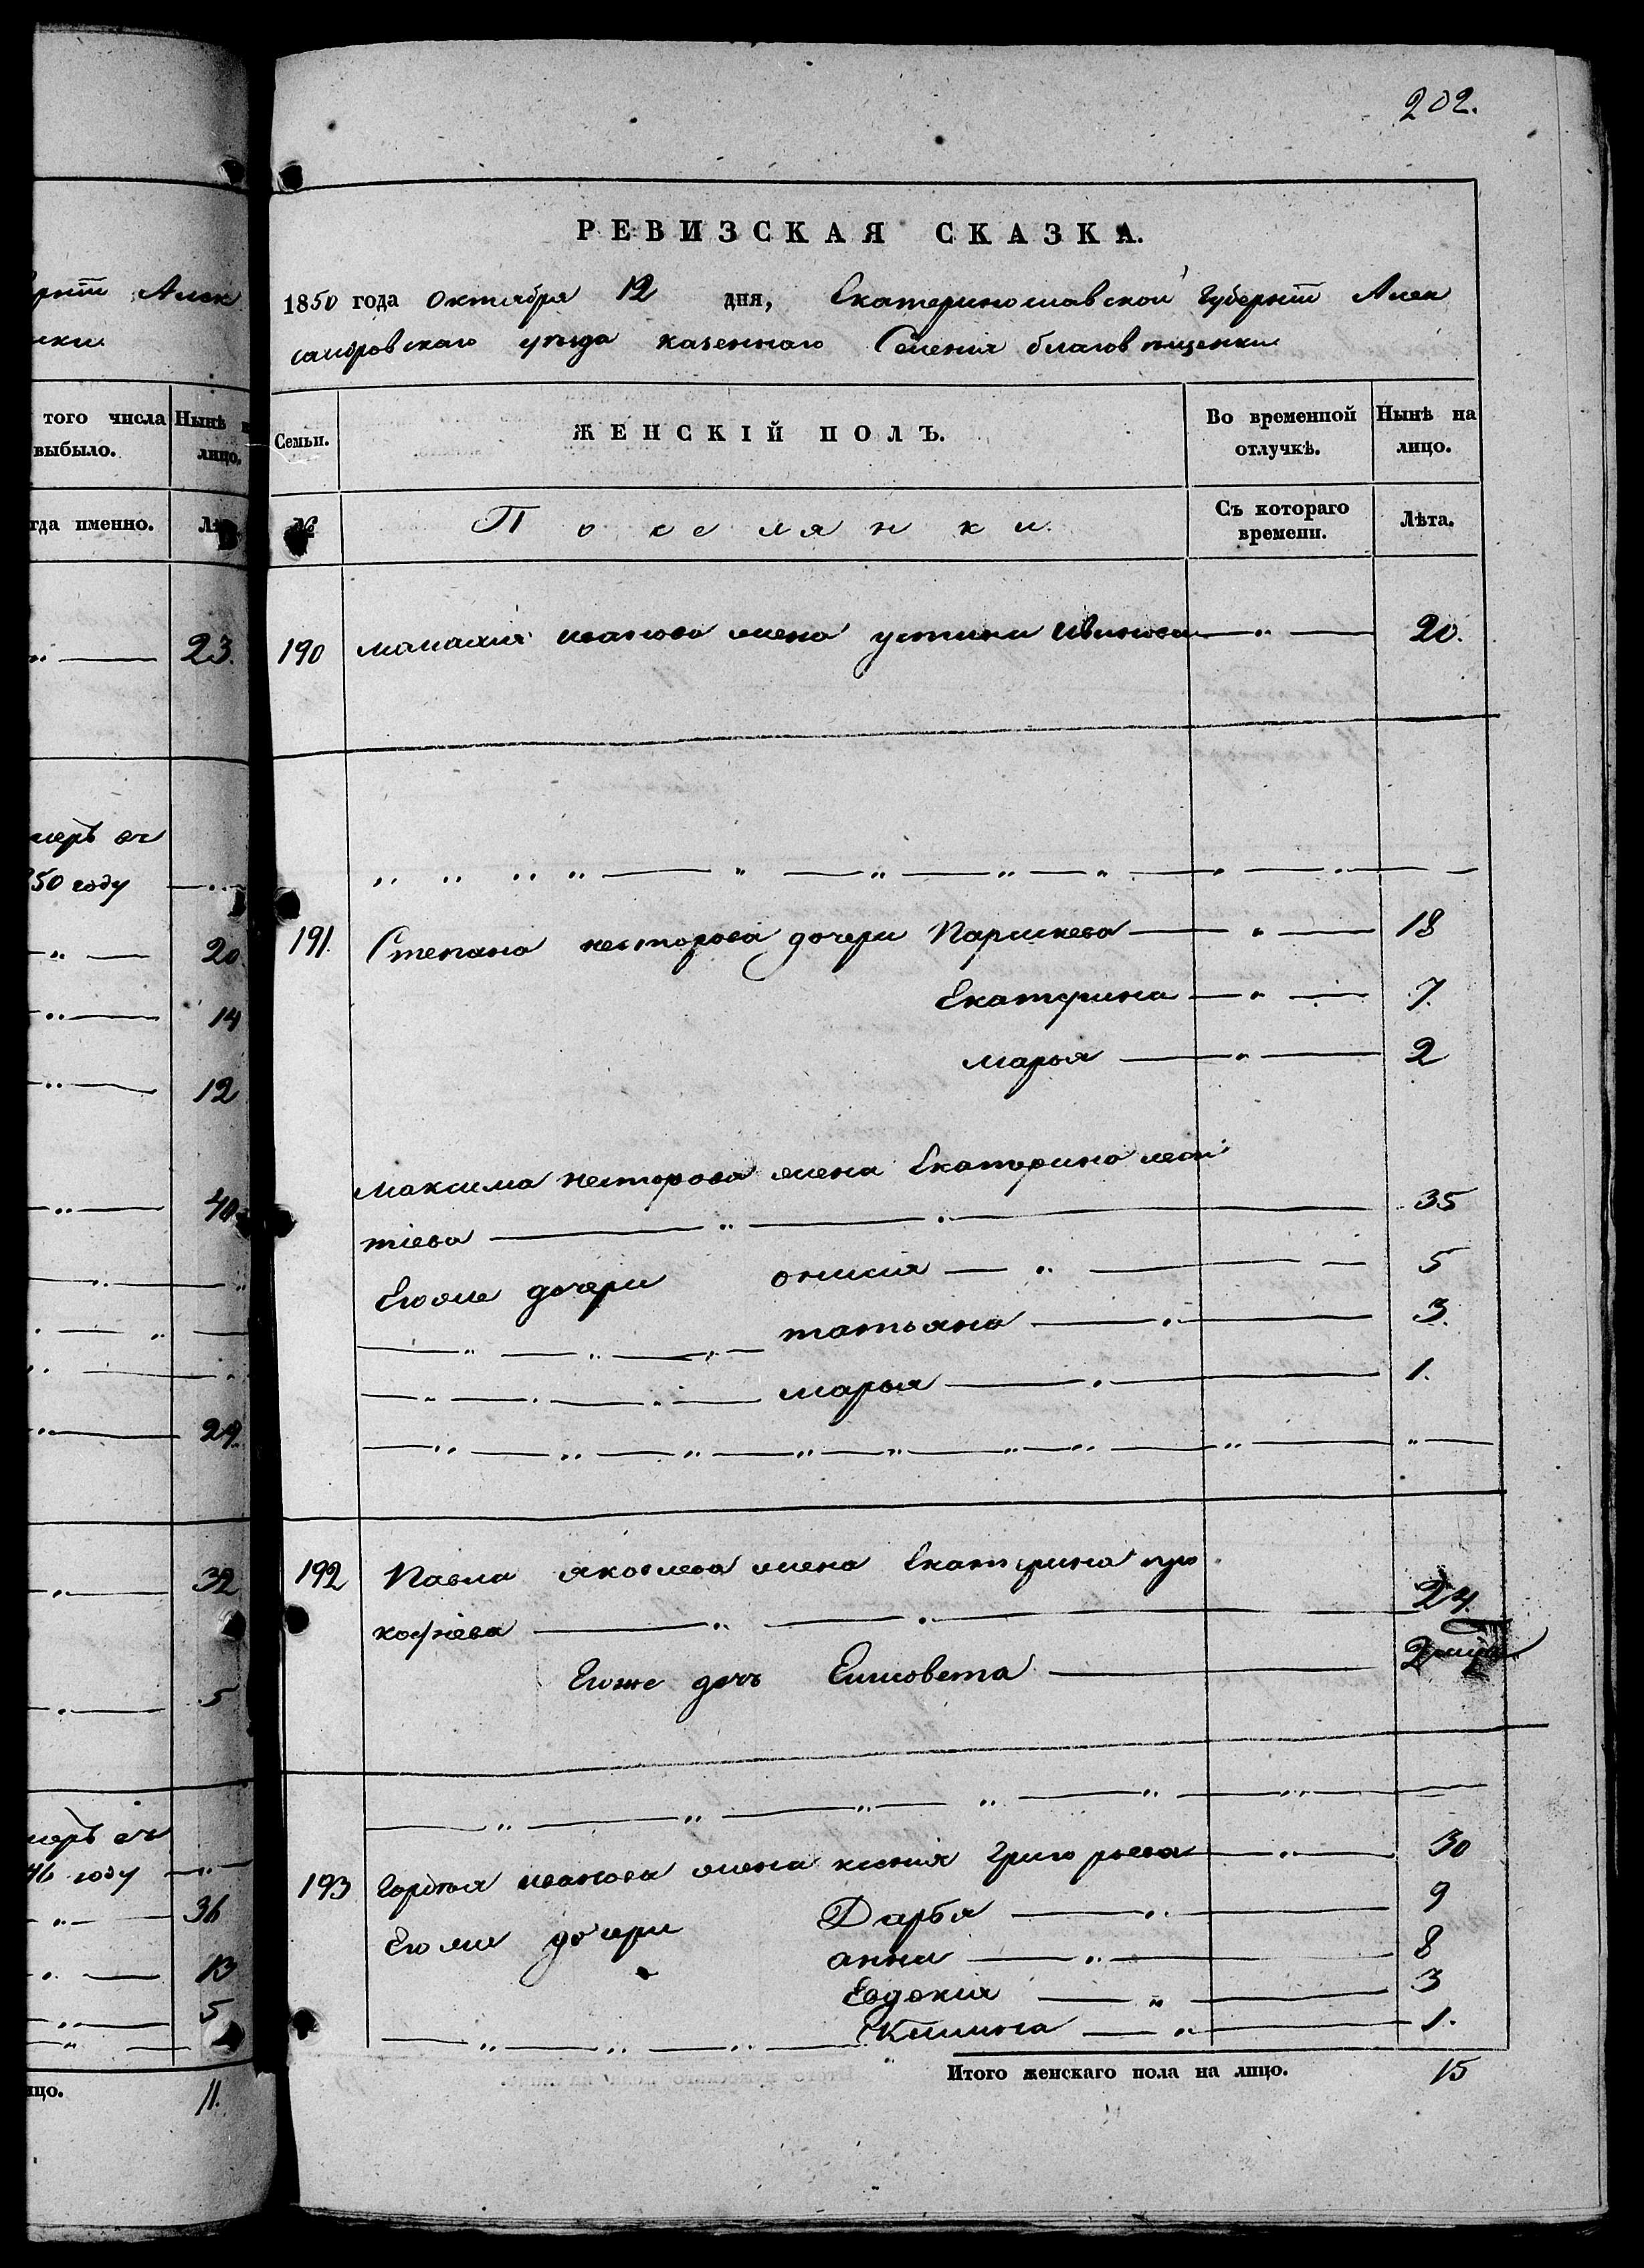 202.
РЕВИЗСКАЯ СКАЗКА.
1850 года октября 12 дня, Екатеринославской Губерніи Алек
сандровскаго уѣзда казеннаго Селенія благовѣщенки
Семьи.
ЖЕНСКІЙ ПОЛЪ.
Во временной отлучкѣ.
Нынѣ на лицо.
№
Поселянки.
Съ котораго времени.
Лѣта.
190 иванова жена устини 20.
191. Степана несторова дочери Параскева 18
Екатерина 7.
марья 2
Максима несторова жена Екатерина леон
тіева 35
Егоже дочери онисія 5
татьяна 3.
марья 1.
192 Павла яковлева жена Екатерина про
кофіева 24.
Егоже дочь Елисовета 2
193 Гордѣя иванова жена ксенія григорьева 30
Егоже дочери Дарья 9
анна 8
Евдокия 3
1.
Итого женскаго пола на лицо. 15
рніи Алек
нки
того числа выбыло.
Нынѣ
лицо.
гда именно.
23.
меръ вч
50 году
20
14
12
40
24.
32
5
меръ вч
46 году
36
13
5
цо.
11.